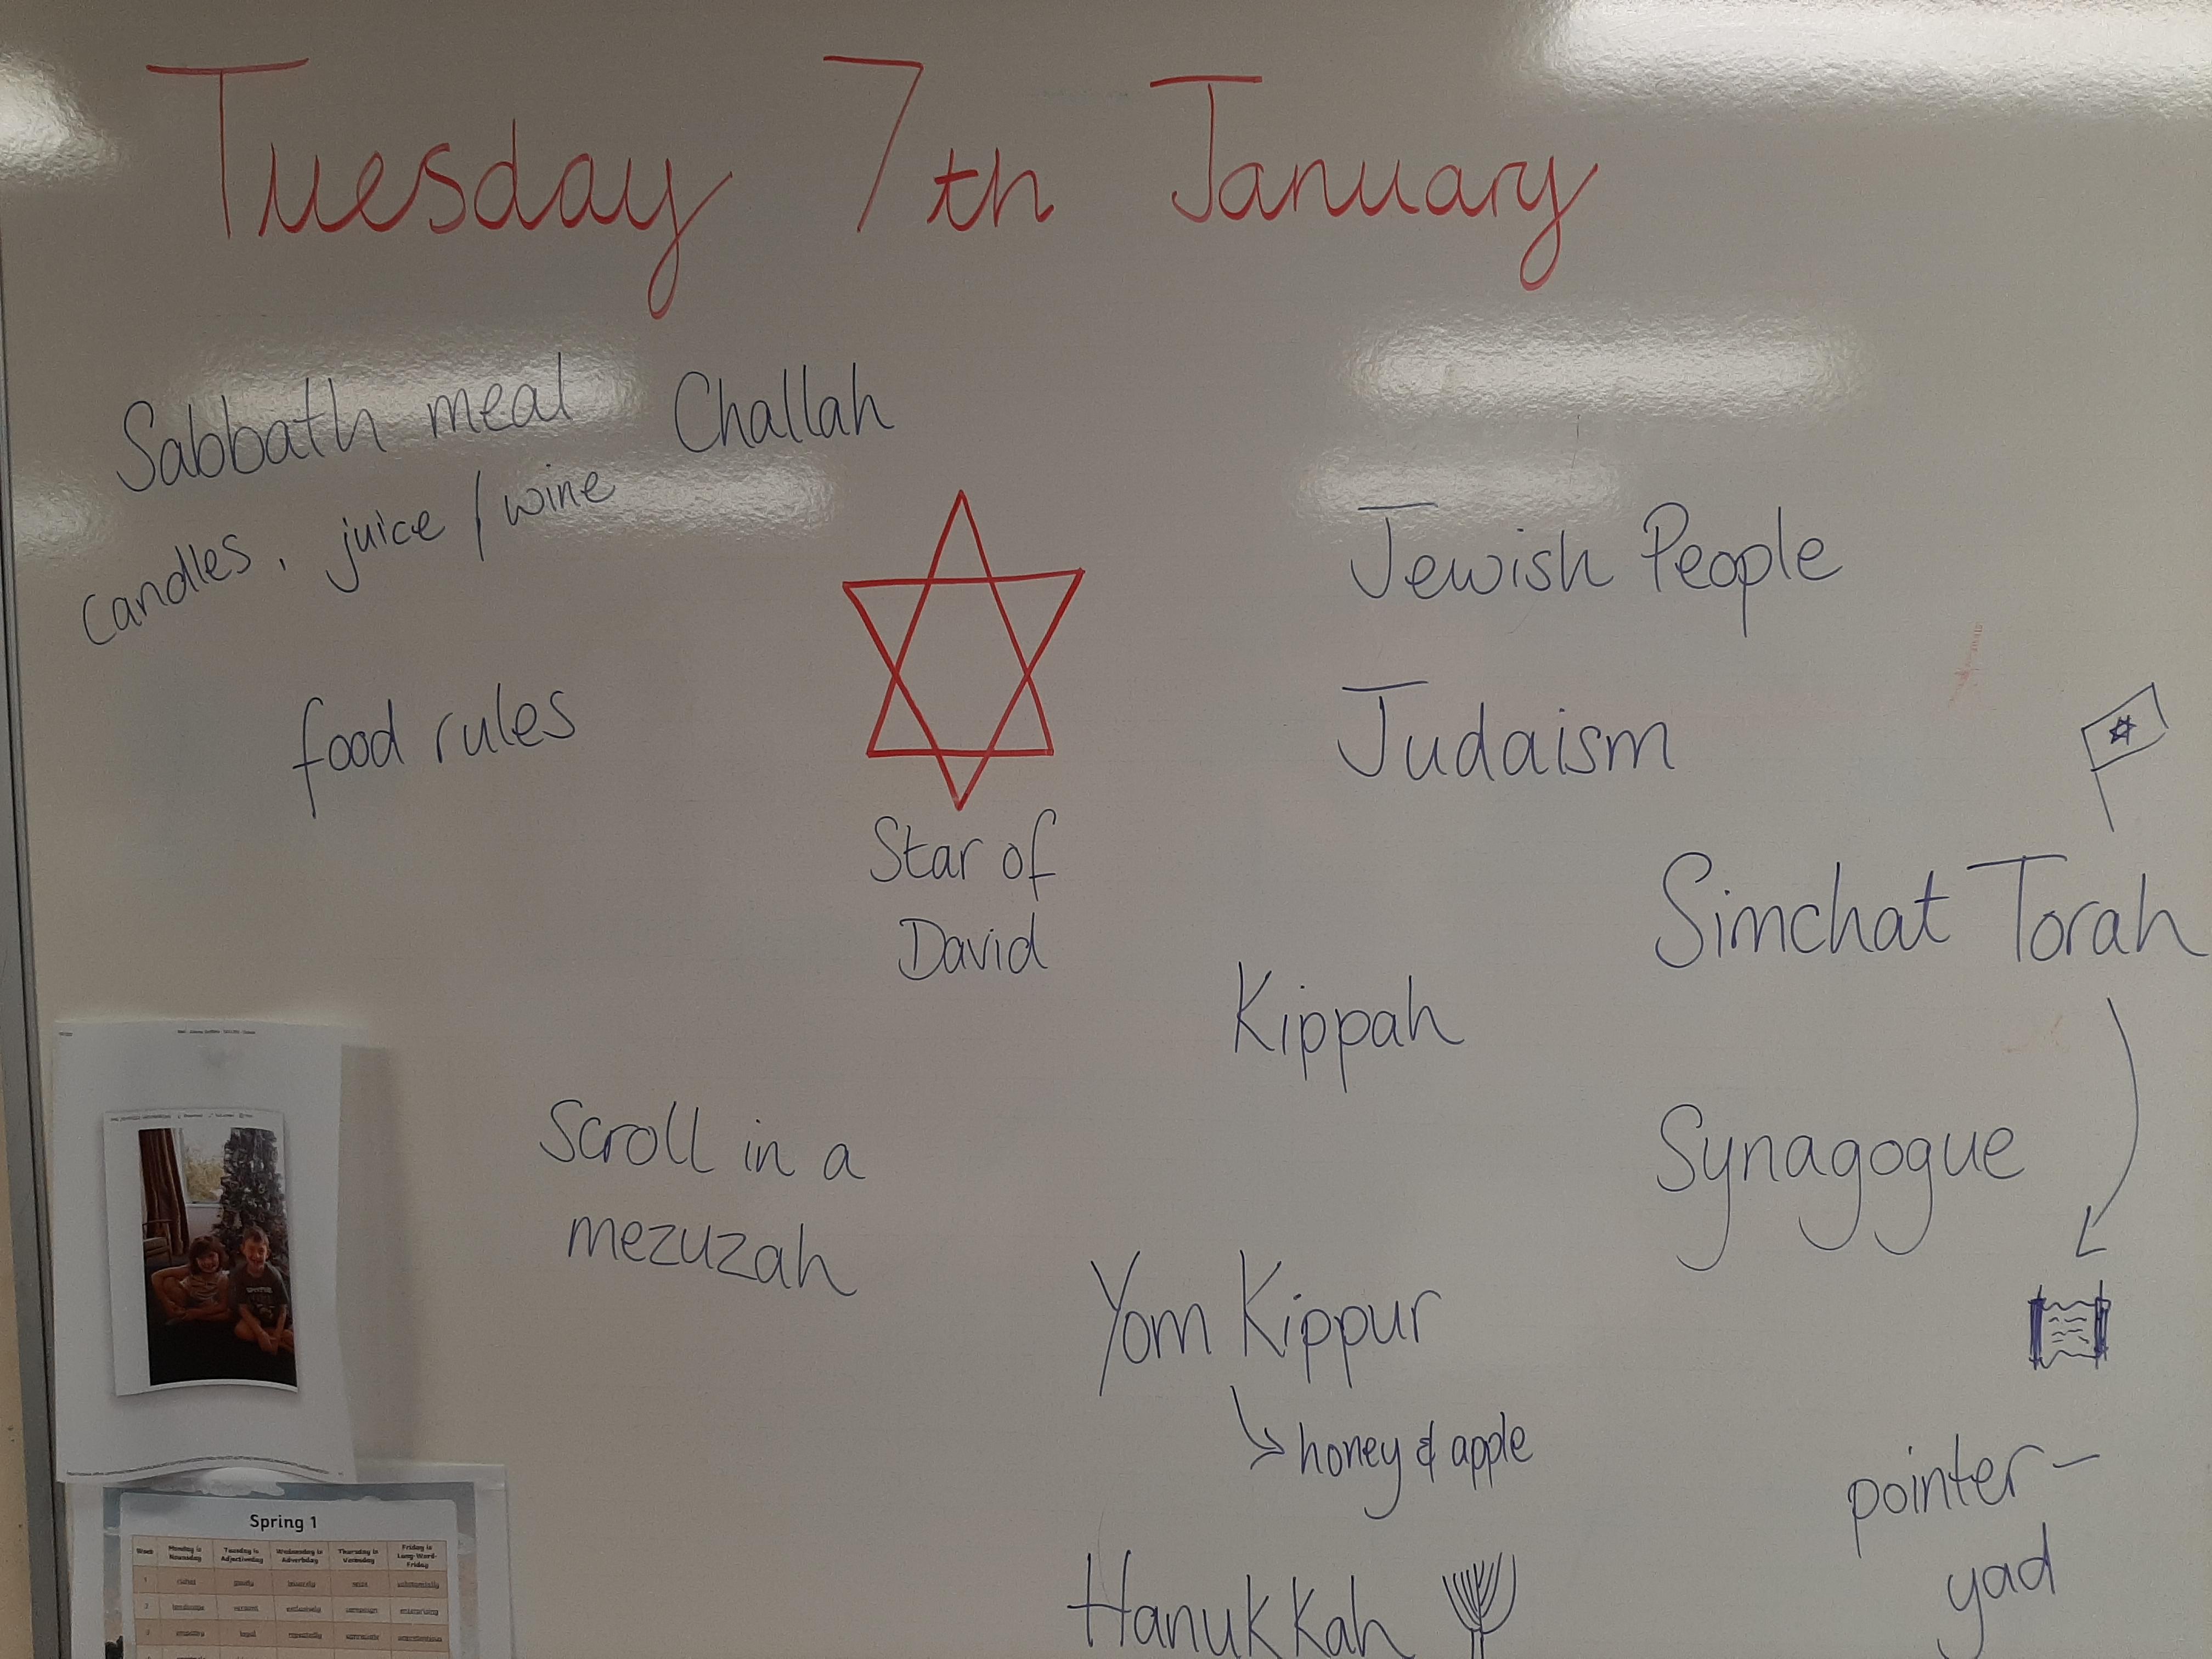 Tuesday 7th January
Sabbath meal
Challah
candles, juice / wine
food rules
Star of
David
Jewish People
Judaism
Simchat Torah
Kippah
Synagogue
Scroll in a
mezuzah
Yom Kippur
honey & apple
pointer –
yad
Hanukkah
Spring 1
Week
Monday is
Nounsday
Tuesday is
Adjectiveday
Wednesday is
Adverbday
Thursday is
Verbsday
Friday is
Long-Word-
Friday